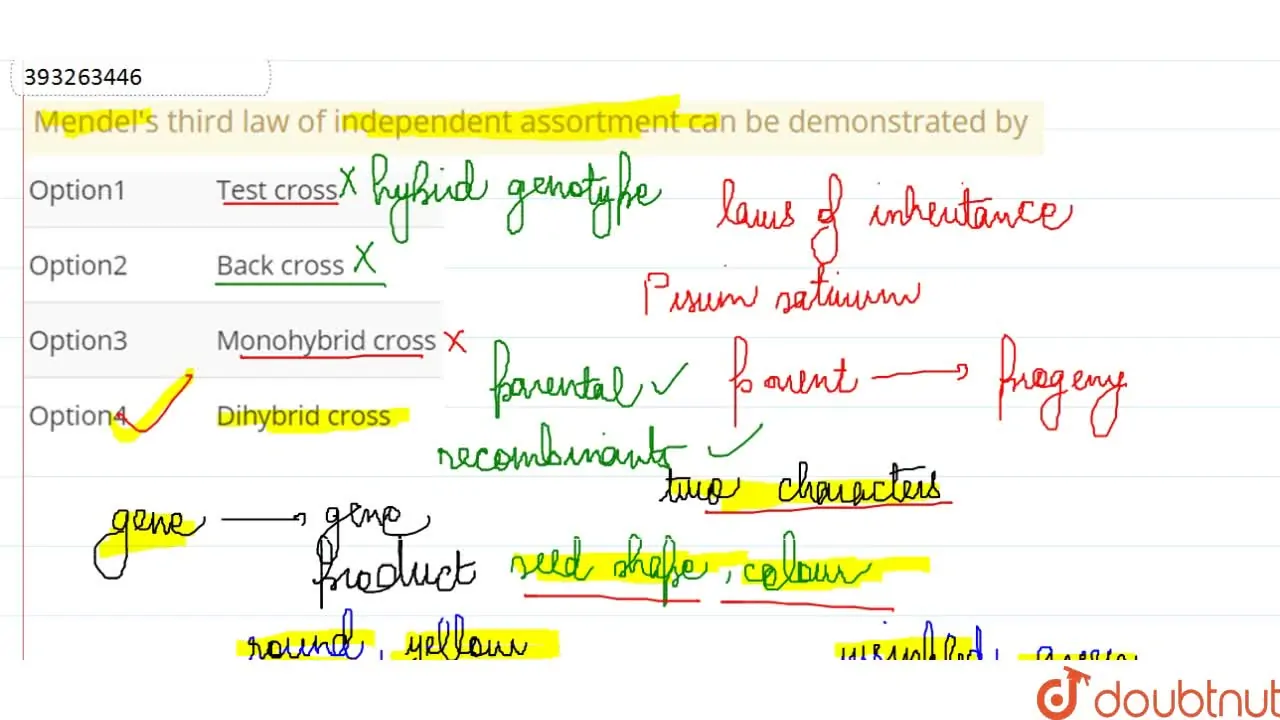 393263446
Mendel's third law of independent assortment can be demonstrated by
Option1 Test cross X hybrid genotype
laws of inheritance
Option2 Back cross X
Pisum sativum
Option3 Monohybrid cross X
parental ✓ parent → progeny
Option4 Dihybrid cross
recombinants ✓
two characters
gene → gene
product
seed shape, colour
round, yellow wrinkled, green
doubtnut